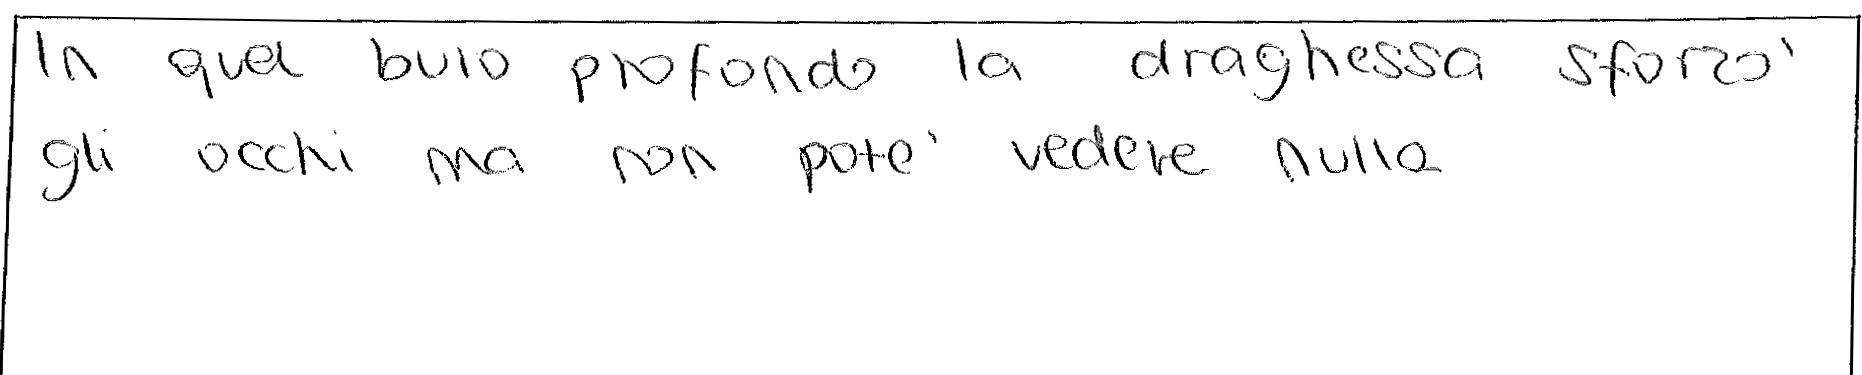 In quel buio profondo la draghessa sforzo'
gli occhi ma non pote' vedere nulla